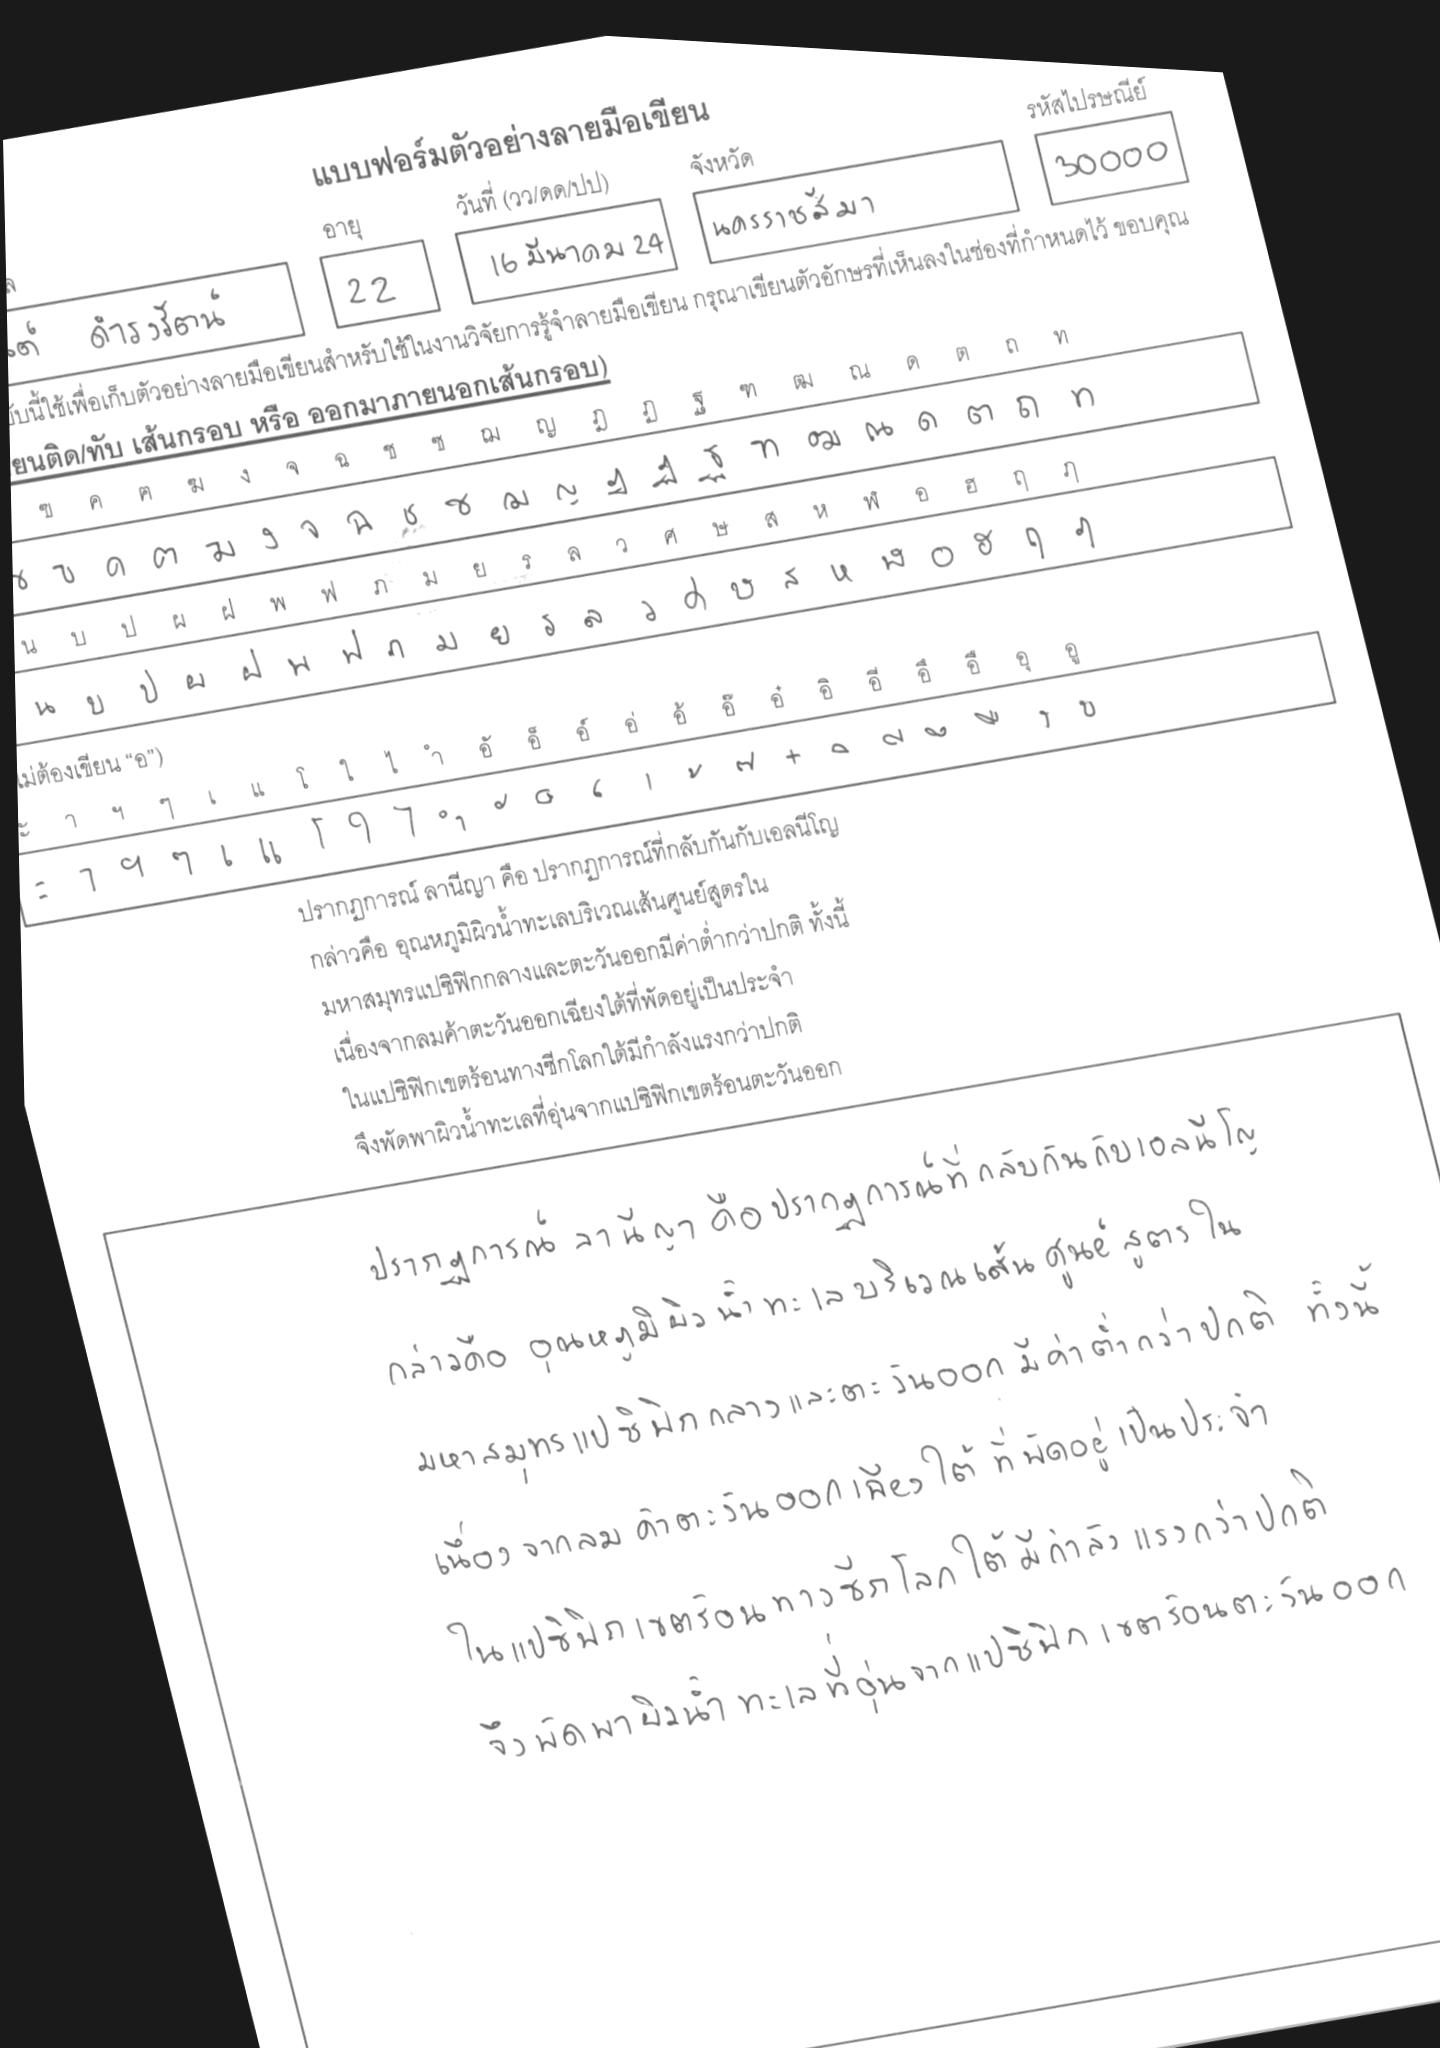 แบบฟอร์มตัวอย่างลายมือเขียน
อายุ วันที่ (วว/ดด/ปป) จังหวัด รหัสไปรษณีย์
ดำรงรัตน์ 22 16 มีนาคม 24 นครราชสีมา 30000
นี้ใช้เพื่อเก็บตัวอย่างลายมือเขียนสำหรับใช้ในงานวิจัยการรู้จำลายมือเขียน กรุณาเขียนตัวอักษรที่เห็นลงในช่องที่กำหนดไว้ ขอบคุณ
ยนติด/ทับ เส้นกรอบ หรือ ออกมาภายนอกเส้นกรอบ)
ฃ ค ฅ ฆ ง จ ฉ ช ซ ฌ ญ ฎ ฏ ฐ ฑ ฒ ณ ด ต ถ ท
ข ฃ ค ฅ ฆ ง จ ฉ ช ซ ฌ ญ ฎ ฏ ฐ ฑ ฒ ณ ด ต ถ ท
น บ ป ผ ฝ พ ฟ ภ ม ย ร ล ว ศ ษ ส ห ฬ อ ฮ ฤ ฦ
น บ ป ผ ฝ พ ฟ ภ ม ย ร ล ว ศ ษ ส ห ฬ อ ฮ ฤ ฦ
ไม่ต้องเขียน “อ”)
ะ า ฯ ๆ เ แ โ ใ ไ ำ อั อ็ อ์ อ่ อ้ อ๊ อ๋ อิ อี อึ อื อุ อู
ะ า ฯ ๆ เ แ โ ใ ไ ำ ั ็ ์ ่ ้ ๊ ๋ ิ ี ึ ื ุ ู
ปรากฏการณ์ ลานีญา คือ ปรากฏการณ์ที่กลับกันกับเอลนีโญ
กล่าวคือ อุณหภูมิผิวน้ำทะเลบริเวณเส้นศูนย์สูตรใน
มหาสมุทรแปซิฟิกกลางและตะวันออกมีค่าต่ำกว่าปกติ ทั้งนี้
เนื่องจากลมค้าตะวันออกเฉียงใต้ที่พัดอยู่เป็นประจำ
ในแปซิฟิกเขตร้อนทางซีกโลกใต้มีกำลังแรงกว่าปกติ
จึงพัดพาผิวน้ำทะเลที่อุ่นจากแปซิฟิกเขตร้อนตะวันออก
ปรากฏการณ์ ลานีญา คือ ปรากฏการณ์ที่ กลับกันกับเอลนีโญ
กล่าวคือ อุณหภูมิผิวน้ำทะเลบริเวณเส้นศูนย์สูตรใน
มหาสมุทรแปซิฟิกกลางและตะวันออก มีค่าต่ำกว่าปกติ ทั้งนี้
เนื่องจากลม ค้าตะวันออกเฉียงใต้ ที่พัดอยู่เป็นประจำ
ในแปซิฟิกเขตร้อนทางซีกโลกใต้มีกำลัง แรงกว่าปกติ
จึงพัดพาผิวน้ำทะเลที่อุ่นจากแปซิฟิกเขตร้อนตะวันออก